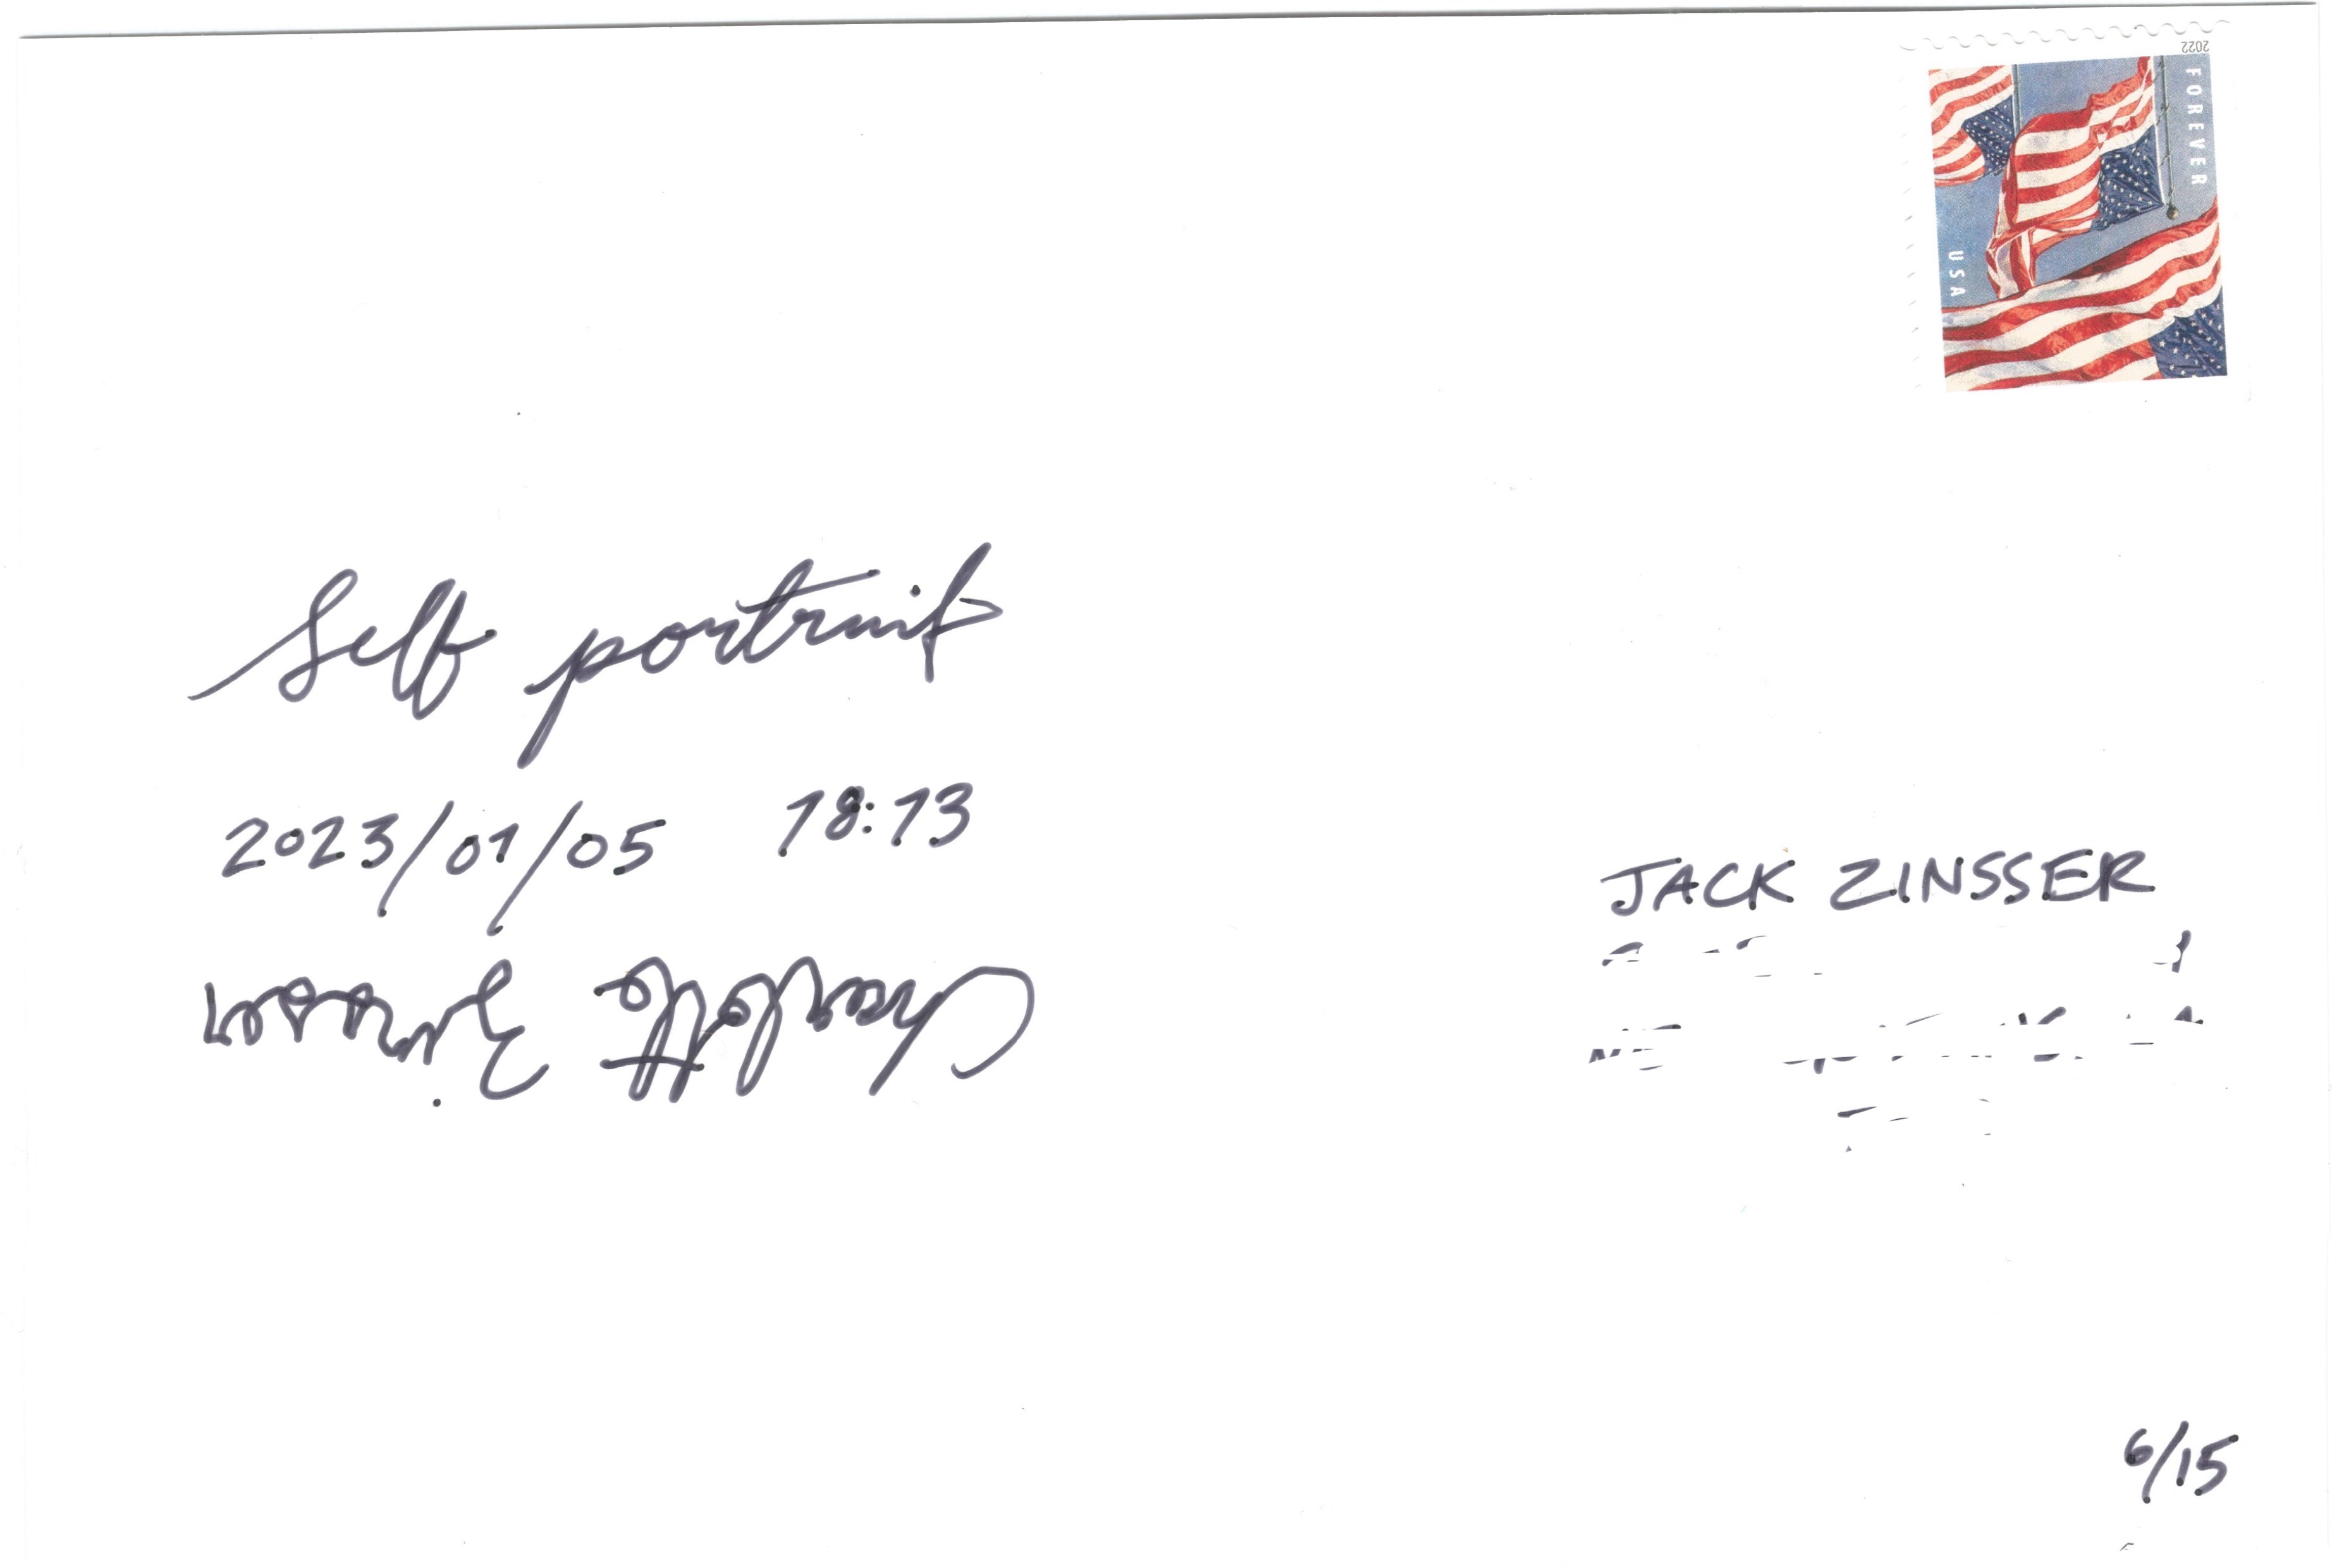 2022
FOREVER
USA
Self portrait
2023/01/05 18:13
Charlotte
JACK ZINSSER
6/15